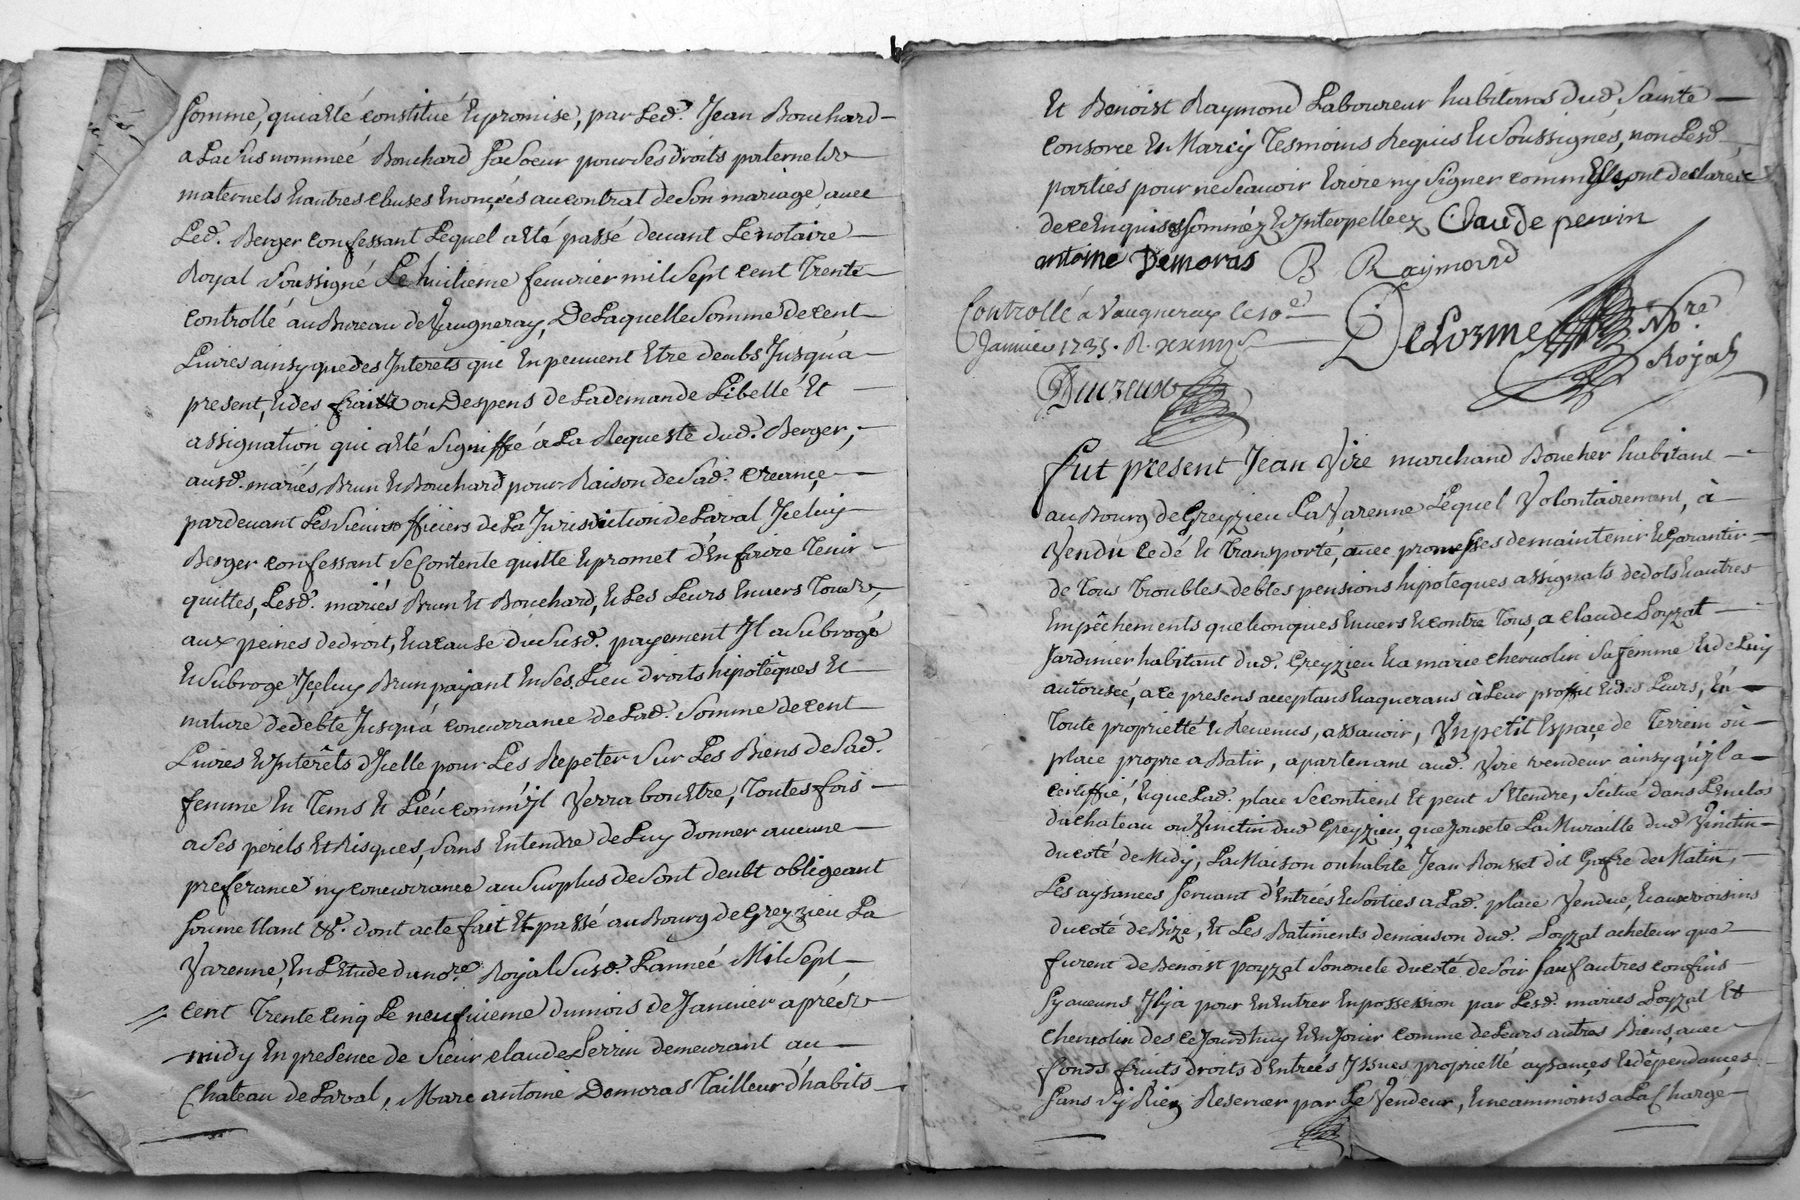 somme, qui a eté constitué et promise, par led. Jean Bouchard
a la susnommeé Bouchard sa soeur pour ses droits paternels
maternels et autres clauses enonçées au contrat de son mariage avec
led. Berger confessant lequel a eté passé devant le notaire
Royal soussigné le huitieme fevrier mil sept cent trente
controllé au Bureau de Vaugneray, de laquelle somme de cent
Livres ainsy que des Interets qui en peuvent etre deubs Jusqu'a
present, et des fraix ou despens de la demande Libellé et
assignation qui a eté signiffié a la Requeste dud. Berger,
ausd. mariés Brun et Bouchard pour Raison de sad. creance
pardevant les sieurs officiers de la Jurisdiction de Laval Jceluy
Berger confessant se contente quitte et promet d'en faire tenir
quittes, lesd. mariés Brun et Bouchard, et les leurs envers tous
aux peines de droit, et a cause du susd. payement Jl a subrogé
et subroge Jçeluy Brun payant en ses lieu droits hipotêques et
nature de debte Jusqu'à concurrance de lad. somme de cent
Livres et Jntérêts d'Jcelle pour les Repeter sur les Biens de sad.
femme en tems et Liéu comm'Jl verra bon etre, toutes fois
a ses perils et Risques, sans entendre de luy donner aucune
preferance ny concurrance au surplus de sont deubt obligeant
soumettant &c. dont acte fait et passé au Bourg de Greyzieu La
Varenne, en l'etude du nore. Royal susd. l'anneé Mil sept
cent trente cinq le neufvieme du mois de Janvier apres
midy en presence de sieur claude Perrin demeurant au
Chateau de Laval, Marc antoine Demoras tailleur d'habits
et Benoist Raymond Laboureur habitans dud. Sainte
Consorce et Marcy tesmoins Requis et soussignés, non lesd.
parties pour ne scavoir ecrire ny signer comm'ils ont declaré
de ce enquis sommez et Jnterpellez Claude perrin
antoine Demoras B Raymond
Controllé a Vaugneray le 10e
Janvier 1735. R.
Delorme Nore
Royal
Ducreux
fut present Jean Viré marchand Boucher habitant
au Bourg de Greyzieu La Varenne lequel volontairement, à
vendu cedé et transporté, avec promesses de maintenir et garantir
de tous troubles debtes pensions hipoteques assignats de dots et autres
Empêchements quelconques envers et contre tous, a claude Loyzat
Jardinier habitant dud. Greyzieu et a marie chervolin sa femme et de luy
autoriseé, a ce presens acceptans et aquerans à leur proffit et des leurs, en
toute proprietté et Revenus, assavoir, un petit Espaçe de terrein où
place propre a Batir, apartenant aud. Viré vendeur ainsy qu'il a
certiffié, et que lad. place se contient et peut s'etendre, scitué dans l'enclos
du chateau ou Vinctin dud Greyzieu, que Jouxte la Muraille dud Vinctin
du coté de Midy, la Maison ou habite Jean Rousset dit Gofre de Matin,
Les aysances servant d'entreés et sorties a lad. place vendue, et aux voisins
du coté de Bize, et les Batiments de maison dud. Loyzat acheteur que
furent de Benoist poyzat son oncle du coté de soir sauf autres confins
sy aucuns Jl y a pour en entrer en possession par lesd. mariés Loyzat et
chervolin des ce Jourd'huy et en Jouir comme de leurs autres Biens, avec
fonds fruits droits d'entreés Jssues proprietté aysançes et dépendançes
sans s'y Rien Reserver par le vendeur, et neammoins a la Charge